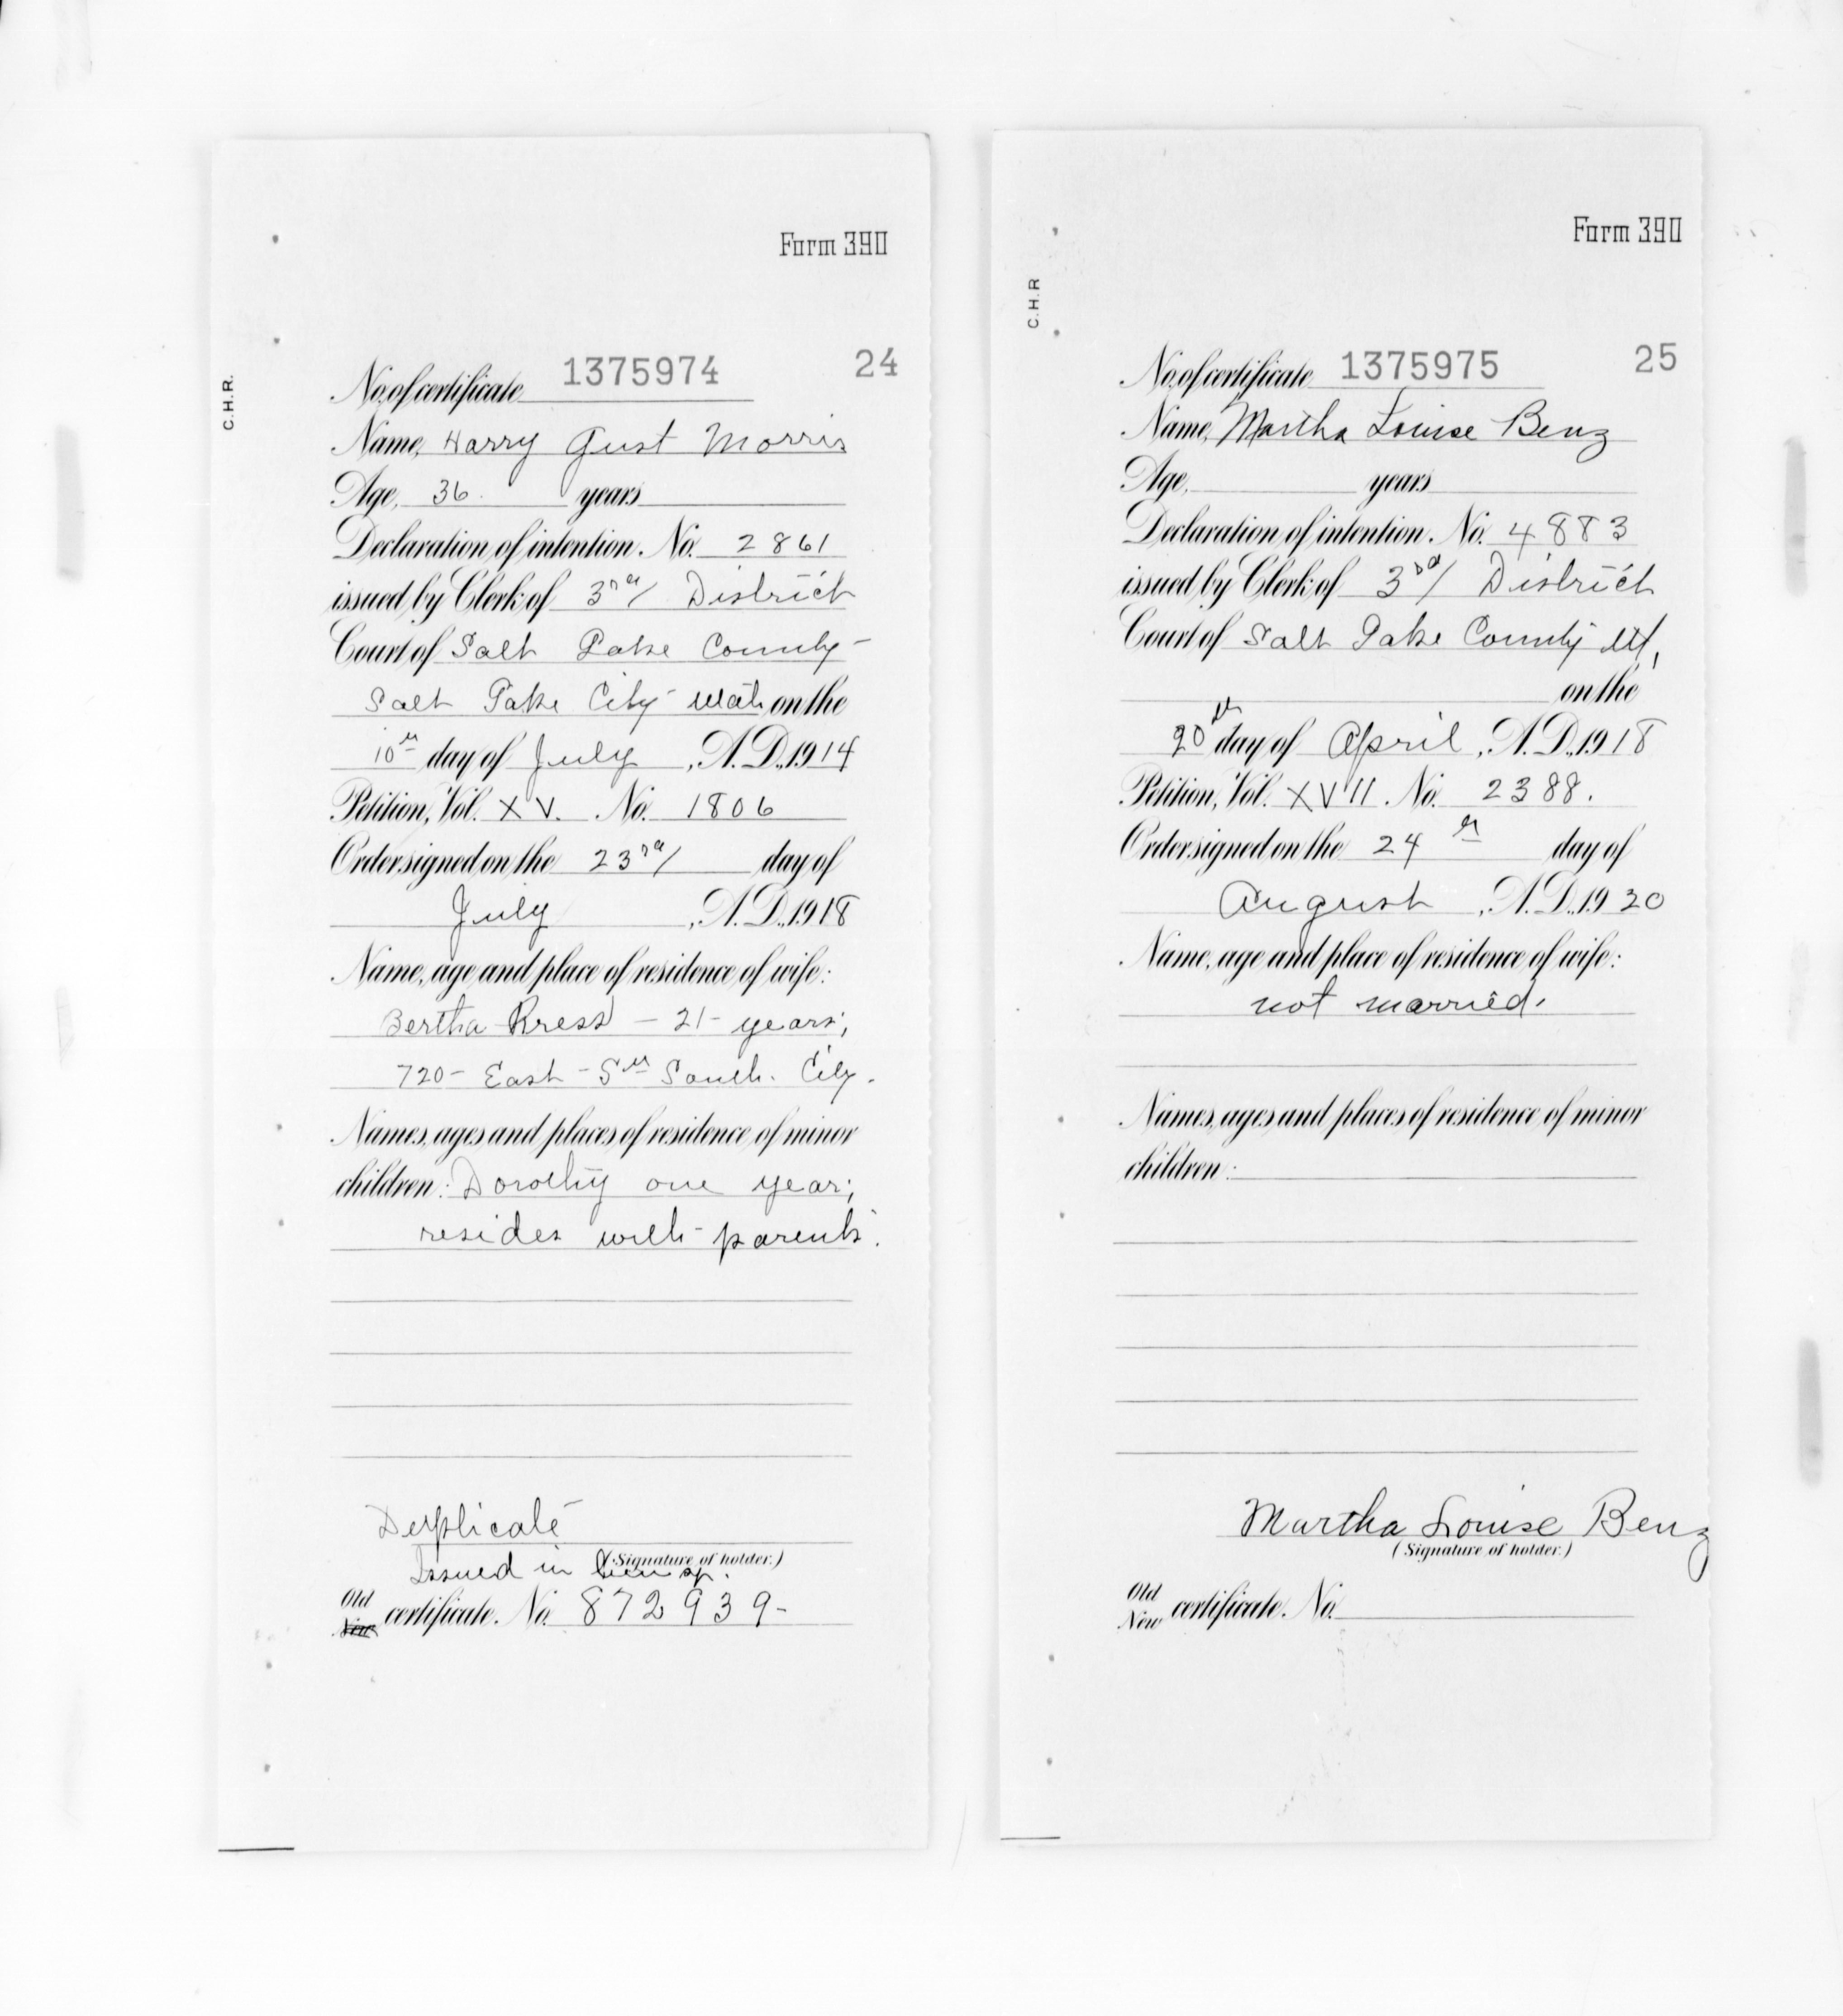 Form 390
C.H.R.
24
No. of certificate 1375974
Name, Harry Gust Morris
Age, 36. years
Declaration of intention. No. 2861
issued by Clerk of 3rd District
Court of Salt Lake County
Salt Lake City Utah on the
10th day of July, A.D. 1914
Petition, Vol. XV. No. 1806
Order signed on the 23rd day of
July, A.D. 1918
Name, age and place of residence of wife:
Bertha Kress - 21 - years;
720 - East - 5th South. City.
Names, ages and places of residence of minor
children: Dorothy one year;
resides with parents.
Duplicate
(Signature of holder.)
Issued in
Old New certificate. No. 872939-
Form 390
C.H.R
25
No. of certificate 1375975
Name, Martha Louise Benz
Age, years
Declaration of intention. No. 4883
issued by Clerk of 3rd District
Court of Salt Lake County Ut,
on the
20th day of April, A.D. 1918
Petition, Vol. XVII. No. 2388.
Order signed on the 24th day of
August, A.D. 1920
Name, age and place of residence of wife:
not married.
Names, ages and places of residence of minor
children:
Martha Louise Benz
(Signature of holder.)
Old New certificate. No.